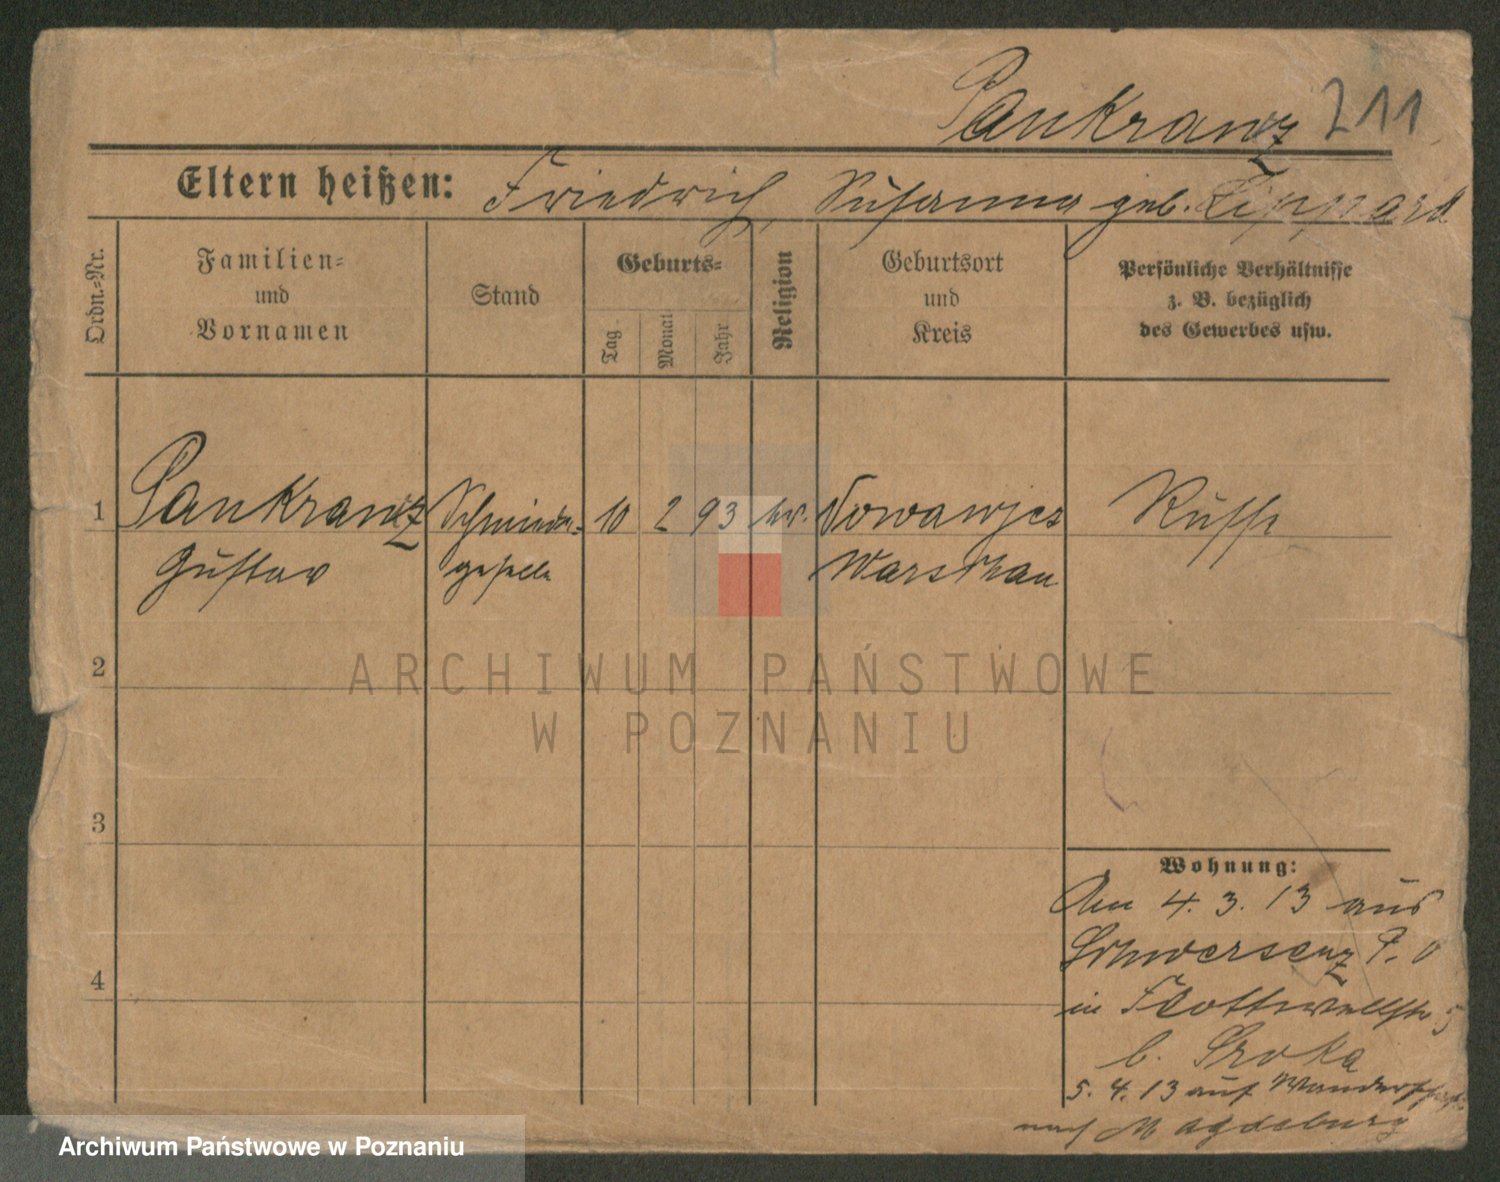 Pankranz 211
Eltern heißen: Friedrich, Susanna geb. Lippard
Ordn.-Nr.
Familien-
und
Vornamen
Stand
Geburts-
Tag
Monat
Jahr
Religion
Geburtsort
und
Kreis
Persönliche Verhältnisse
z. B. bezüglich
des Gewerbes usw.
1 Pankranz Schmiede- 10 2 93 ev. Russe
Gustav geselle Warschau
2
3
4
Wohnung:
Am 4. 3. 13 aus
Schwersenz P. O
in Flottwellstr 5
b. Sroka
5. 4. 13 auf Wanderschaft
nach Magdeburg
ARCHIWUM PAŃSTWOWE
W POZNANIU
Archiwum Państwowe w Poznaniu